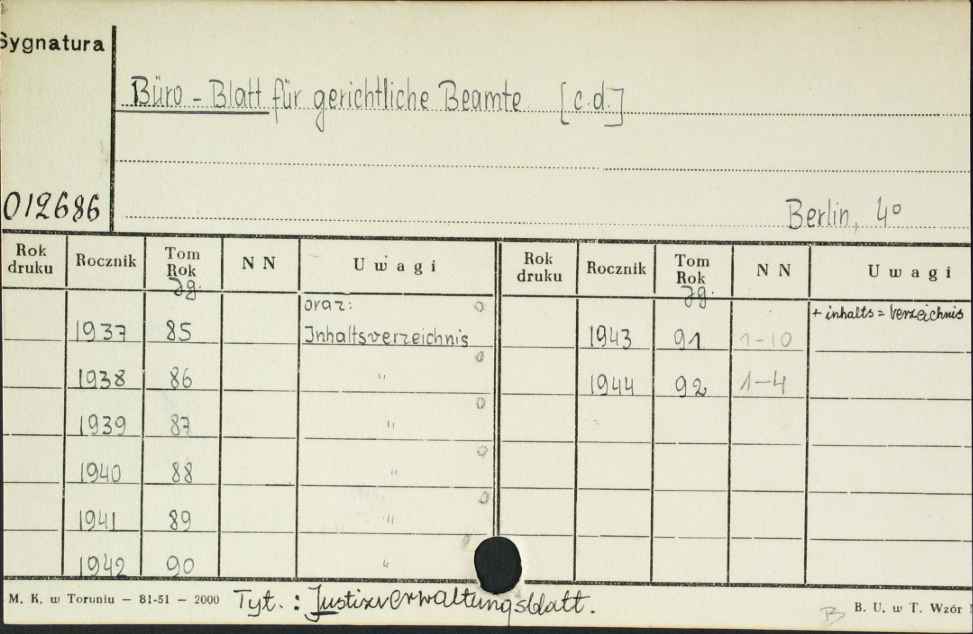 Sygnatura
Büro - Blatt für gerichtliche Beamte [c.d.]
012686
Berlin, 4º
Rok druku Rocznik Tom Rok Jg. N N Uwagi Rok druku Rocznik Tom Rok Jg. N N Uwagi
oraz: + inhalts = Verzeichnis
1937 85 Inhaltsverzeichnis 1943 91 1-10
1938 86 " 1944 92 1-4
1939 87 "
1940 88 "
1941 89 "
1942 90 "
M. K. w Toruniu — 81-51 — 2000 Tyt. : Justizverwaltungsblatt. B B. U. w T. Wzór